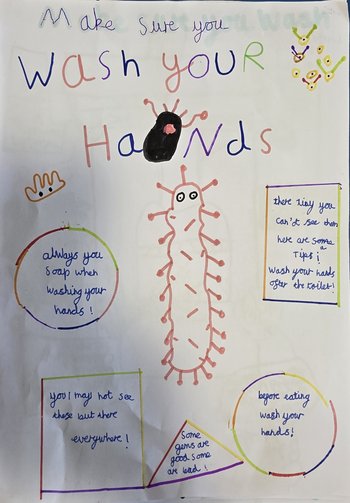 Make Sure you
Wash your
Hands
always you
Soap when
washing your
hands!
there tiny you
Can't see them
here are some
Tips!
Wash your hands
after the toilet!
you/may not see
these but there
everywhere!
Some
gems are
good some
are bad!
before eating
wash your
hands!